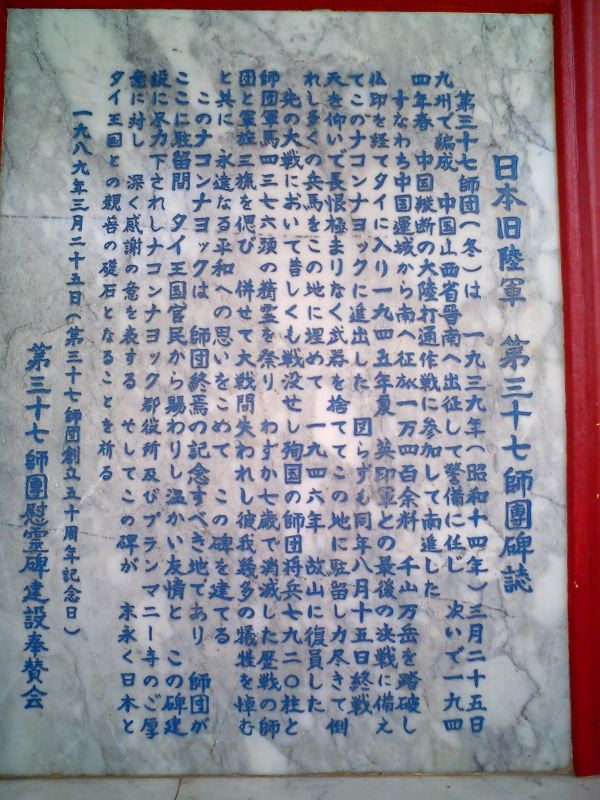 日本旧陸軍 第三十七師團碑誌
第三十七師団(冬)は 一九三九年(昭和十四年)三月二十五日
九州で編成 中国山西省晋南へ出征して警備に任じ 次いで一九四
四年春 中国縦断の大陸打通作戦に参加して南進した
すなわち中国運城から南へ征旅一万四百余粁 千山万岳を踏破し
仏印を経てタイに入り一九四五年夏 英印軍との最後の決戦に備え
てこのナコンナヨックに進出した 図らずも同年八月十五日終戦
天を仰いで長恨極まりなく武器を捨ててこの地に駐留し力尽きて倒
れし多くの兵馬をこの地に埋めて 一九四六年 故山に復員した
先の大戦において惜しくも戦没せし殉国の師団将兵七九二〇柱と
師団軍馬四三七六頭の精霊を祭り わずか七歳で消滅した歴戦の師
団と軍旗三旒を偲び 併せて大戦間失われし彼我幾多の犠牲を悼む
と共に 永遠なる平和への思いをこめて この碑を建てる
このナコンナヨックは 師団終焉の記念すべき地であり 師団が
ここに駐留間 タイ王国官民から賜わりし温かい友情と この碑建
設に尽力下されしナコンナヨック郡役所及びプランマニー寺のご厚
意に対し 深く感謝の意を表する そしてこの碑が 末永く日本と
タイ王国との親善の礎石となることを祈る
一九八九年三月二十五日(第三十七師団創立五十周年記念日)
第三十七師團慰霊碑建設奉賛会